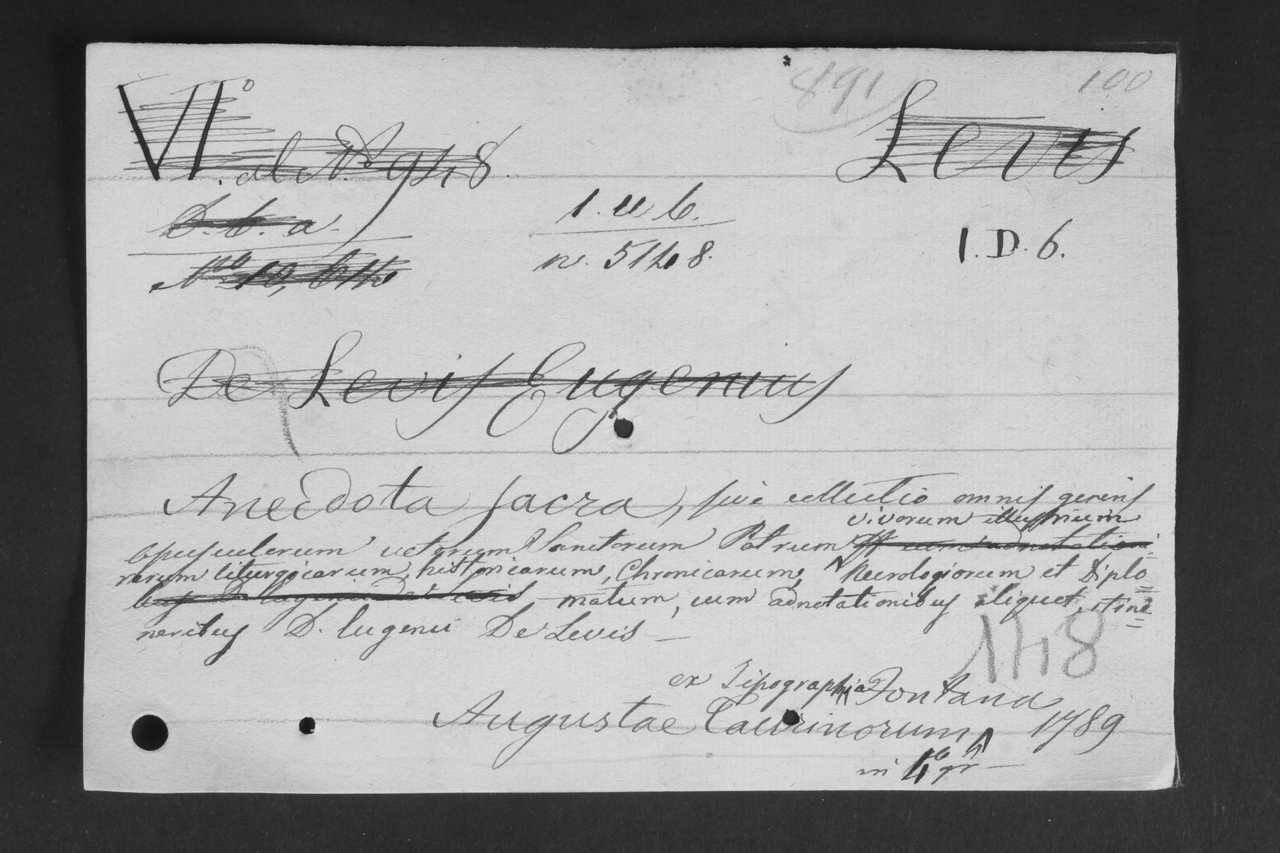 891
100
VI.º al N.º 948.
Levis
D. b. a.
1. u 6.
n. 5148.
1. D. 6.
De Levis Eugenius
Anecdota sacra, sive collectio omnis generis
opusculorum veterum Sanctorum Patrum virorum illustrium
rerum liturgicarum, historicarum, Chronicarum, Necrologiorum et Diplo=
matum, cum adnotationibus aliquot, itine=
neribus D. Eugenii De Levis —
148
ex Tipographia Fontana
Augustae Taurinorum 1789
in 4.to gr —